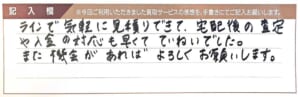 記入欄
※今回ご利用いただきました買取サービスの感想を、手書きにてご記入お願いします。
ラインで気軽に見積りできて、宅配後の査定
や入金の対応も早くて ていねいでした。
また機会があれば よろしくお願いします。